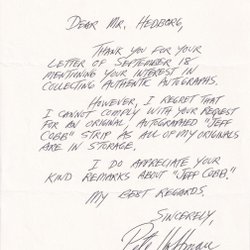 DEAR MR. HEDBORG,
THANK YOU FOR YOUR
LETTER OF SEPTEMBER 18
MENTIONING YOUR INTEREST IN
COLLECTING AUTHENTIC AUTOGRAPHS.
HOWEVER, I REGRET THAT
I CANNOT COMPLY WITH YOUR REQUEST
FOR AN ORIGINAL, AUTOGRAPHED "JEFF
COBB" STRIP AS ALL OF MY ORIGINALS
ARE IN STORAGE.
I DO APPRECIATE YOUR
KIND REMARKS ABOUT "JEFF COBB."
MY BEST REGARDS.
SINCERELY,
Pete Hoffman